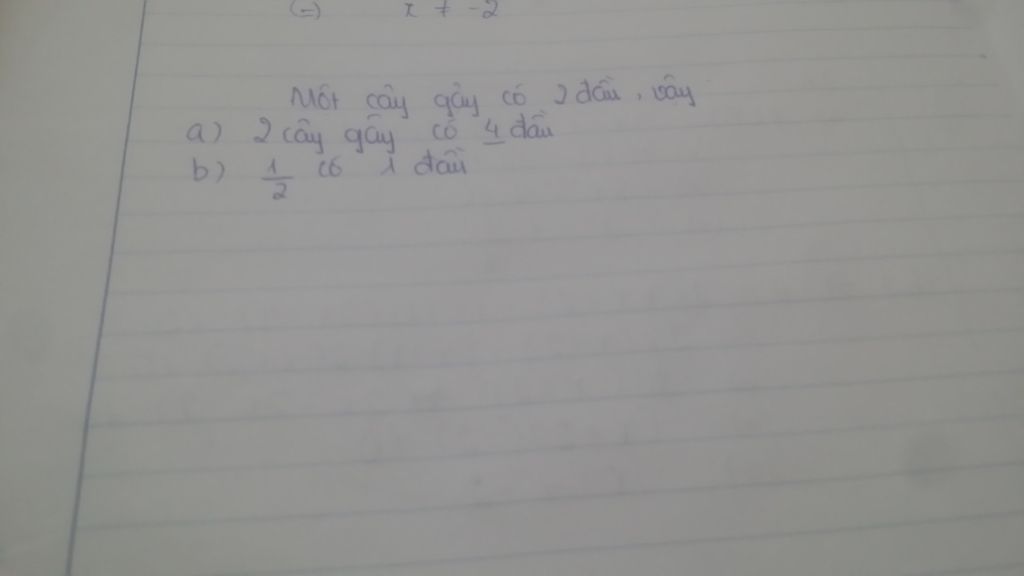 (=) x ≠ -2
Một cây gậy có 2 đầu, vậy
a) 2 cây gậy có 4 đầu
b) 1/2 có 1 đầu